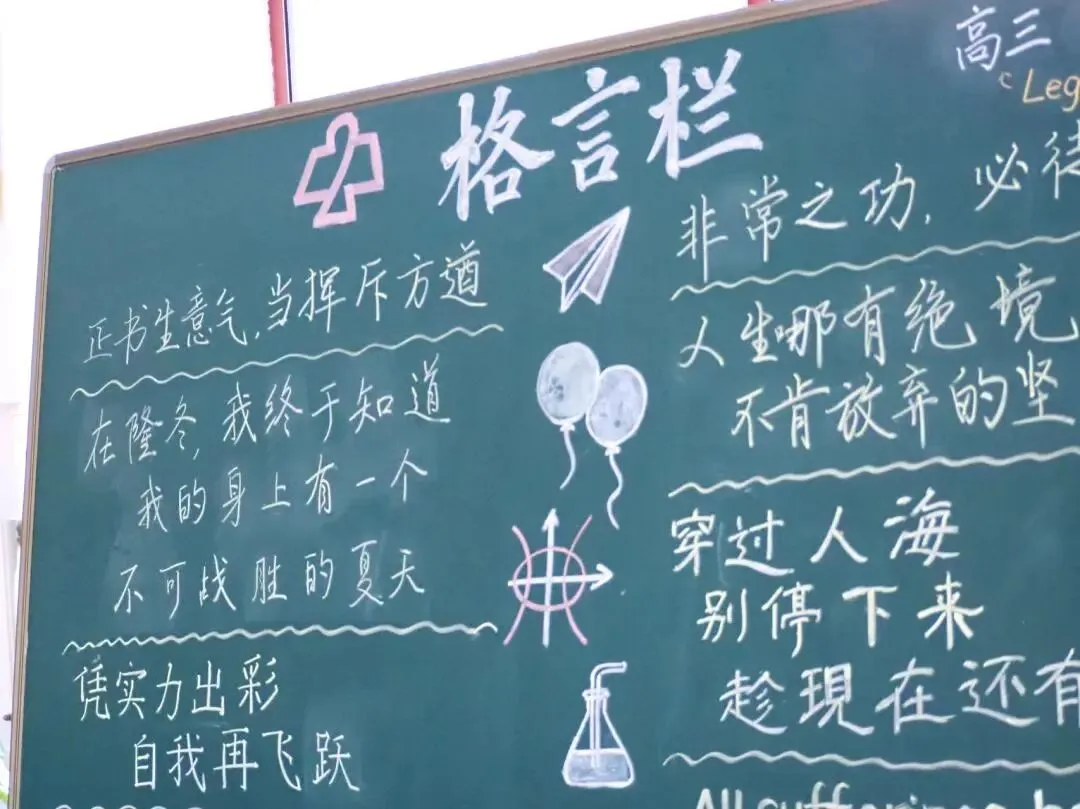 格言栏
正书生意气,当挥斥方遒
在隆冬,我终于知道
我的身上有一个
不可战胜的夏天
凭实力出彩
自我再飞跃
高三
Leg
非常之功,必
人生哪有绝境
不肯放弃的坚
穿过人海
别停下来
趁現在还有
All suffering